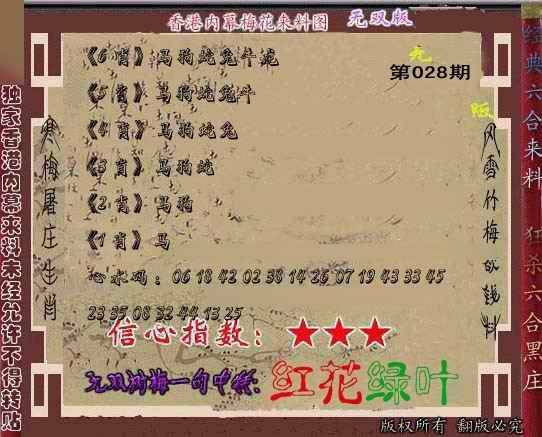 香港内幕梅花来料图 无双版
无
第028期
版
《6肖》马狗蛇兔牛龙
《5肖》马狗蛇兔牛
《4肖》马狗蛇兔
《3肖》马狗蛇
《2肖》马狗
《1肖》马
心水码：06 18 42 02 38 14 26 07 19 43 33 45
23 35 08 32 44 13 25
信心指数：★★★
无双 梅一句中特：红花绿叶
版权所有 翻版必究
独家香港内幕来料未经允许不得转贴
寒梅屠庄生肖
风雪竹梅 钱料
经典六合来料 狂杀六合黑庄